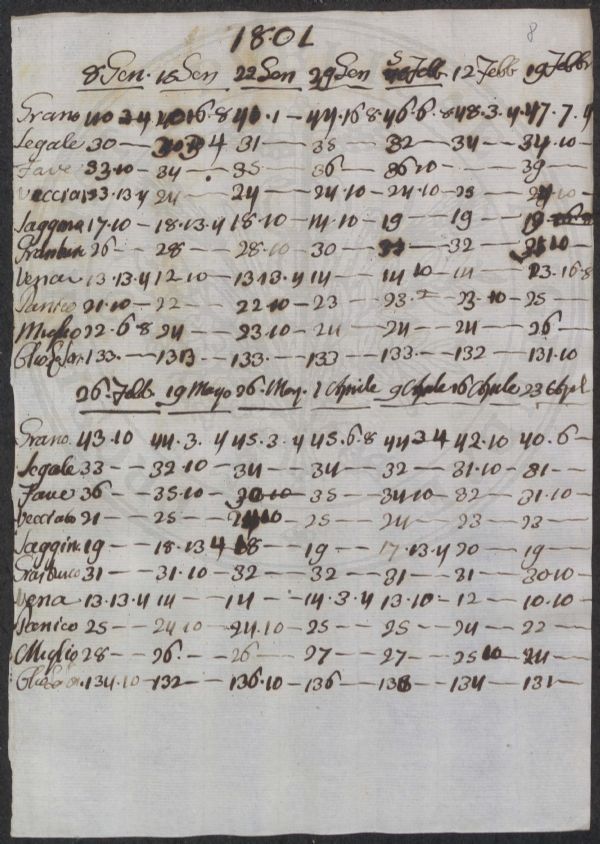 1801
8
8 Gen. 15 Gen 22 Gen 29 Gen 5 Febb 12 Febb 19 Febbr
Grano 40 3 4 40 6. 8 41. 1 — 44. 16 8. 46. 6. 8 48. 3. 4. 47. 7. 4
Segale 30 — 4 31 — 33 — 32 — 34 — 34. 10 —
Fave 33. 10 — 34 — 35 — 36 — 36 10 — 39 —
Vecciato 33. 13. 4 24 — 24 — 24. 10 — 24. 10 — 25 — 10 —
Saggina 17. 10 — 18. 13. 4 18. 10 — 14. 10 — 19 — 19 — 19
Granturc 26 — 28 — 28. 10 — 30 — — 32 — 10 —
Vena 13. 13. 4 12. 10 — 13. 13. 4 14 — 14 10 — 14 — 13. 16. 8
Panico 21. 10 — 22 — 22. 10 — 23 — 23. 2 — 23. 10 — 25 —
Miglio 22. 6 8 24 — 23. 10 — 24 — 24 — 24 — 26 —
133. — 133 — 133. — 133 — 133. — 132 — 131. 10
26. Febb. 19 Marzo 26. Mar. 1 Aprile 9 Aprile 16 Aprile 23 Apl
Grano. 43. 10 44. 3. 4 45. 3. 4 45. 6. 8 44 3 4 42. 10 40. 6 —
Segale 33 — 32. 10 — 34 — 34 — 32 — 31. 10 — 31 —
Fave 36 — 35. 10 — 10 — 35 — 34. 10 — 32 — 31. 10 —
Vecciato 21 — 25 — 10 — 25 — 24 — 23 — 23 —
Saggin. 19 — 18. 13 4 18 — 19 — 17. 13. 4 20 — 19 —
Granturco 31 — 31. 10 — 32 — 32 — 31 — 31 — 30. 10 —
Vena 13. 13. 4 14 — 14 — 14. 3. 4 13. 10 — 12 — 10. 10 —
Panico 25 — 24 10 — 24. 10 — 25 — 25 — 24 — 22 —
Miglio 28 — 26. — 26 — 27 — 27 — 25 10 — 24 —
134. 10 — 132 — 136. 10 — 136 — 13 — 134 — 131 —